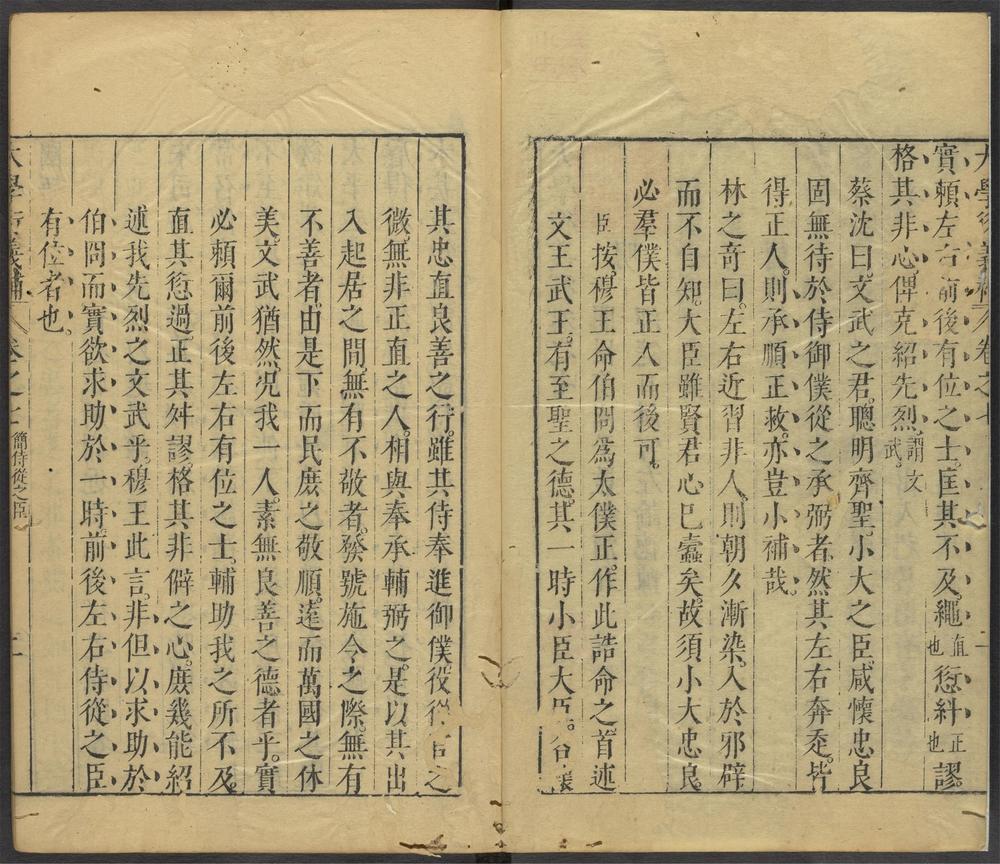 大學衍義補 卷之七
實頼左右前後有位之士匡其不及繩直也愆糾正也謬
格其非心俾克紹先烈謂文武
蔡沈曰文武之君聰明齊聖小大之臣咸懷忠良
固無待於侍御僕從之承弼者然其左右奔走皆
得正人則承順正救亦豈小補哉
林之奇曰左右近習非人則朝夕漸染入於邪辟
而不自知大臣雖賢君心已蠹矣故須小大忠良
必羣僕皆正人而後可
臣按穆王命伯冏為太僕正作此誥命之首述
文王武王有至聖之德其一時小臣大臣
其忠直良善之行雖其侍奉進御僕役從官之
微無非正直之人相與奉承輔弼之是以其出
入起居之間無有不敬者發號施令之際無有
不善者由是下而民庶之敬順遠而萬國之休
美文武猶然况我一人素無良善之德者乎實
必頼爾前後左右有位之士輔助我之所不及
直其愆過正其舛謬格其非僻之心庶幾能紹
述我先烈之文武乎穆王此言非但以求助於
伯冏而實欲求助於一時前後左右侍從之臣
有位者也
大學衍義補 卷之七 簡侍從之臣 二